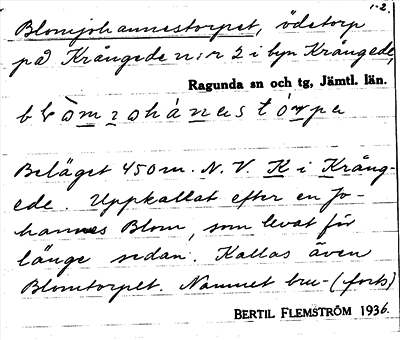 1-2.
Blomjohannestorpet, ödetorp
på Krångede n:r 2 i byn Krångede,
Ragunda sn och tg, Jämtl. län.
Beläget 450 m. N.V. K i Krång-
ede. Uppkallat efter en Jo-
hannes Blom, som levat för
länge sedan. Kallas även
Blomtorpet. Namnet bru- (forts)
BERTIL FLEMSTRÖM 1936.